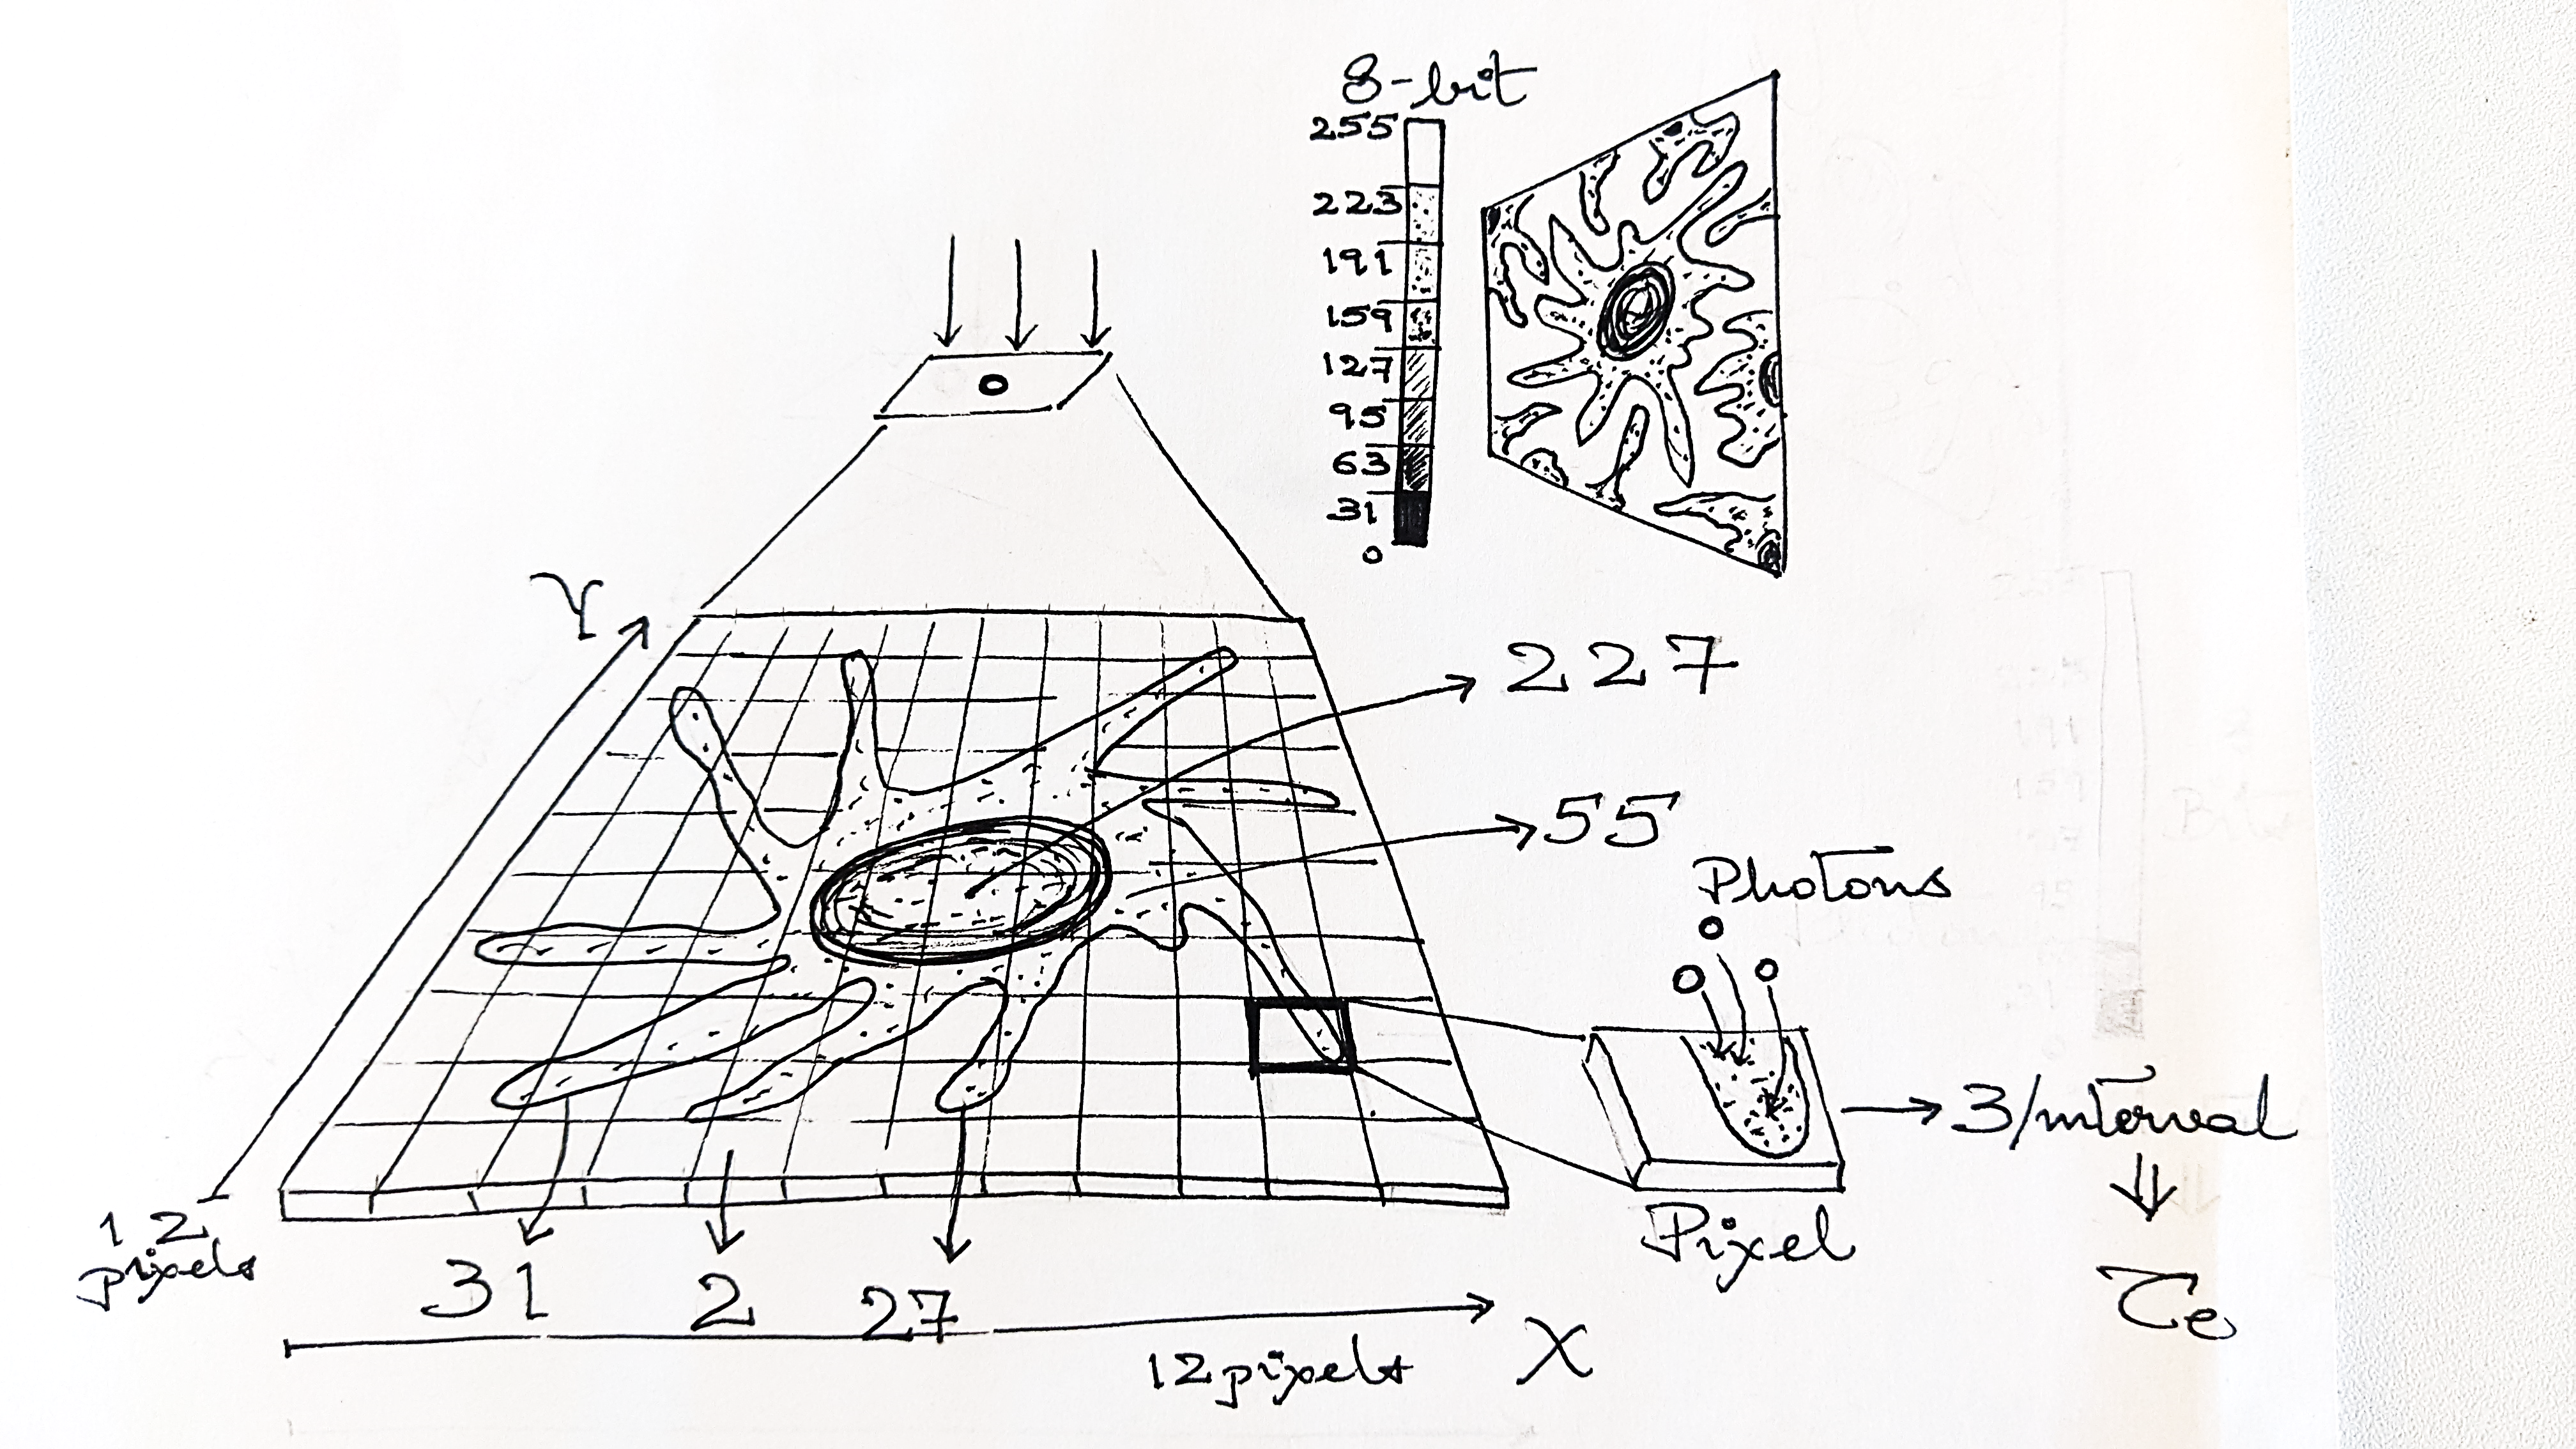 8-bit
255
223
191
159
127
95
63
31
0
Y
227
55
Photons
3/interval
Pixel
τe
12
pixels
31
2
27
12 pixels
X